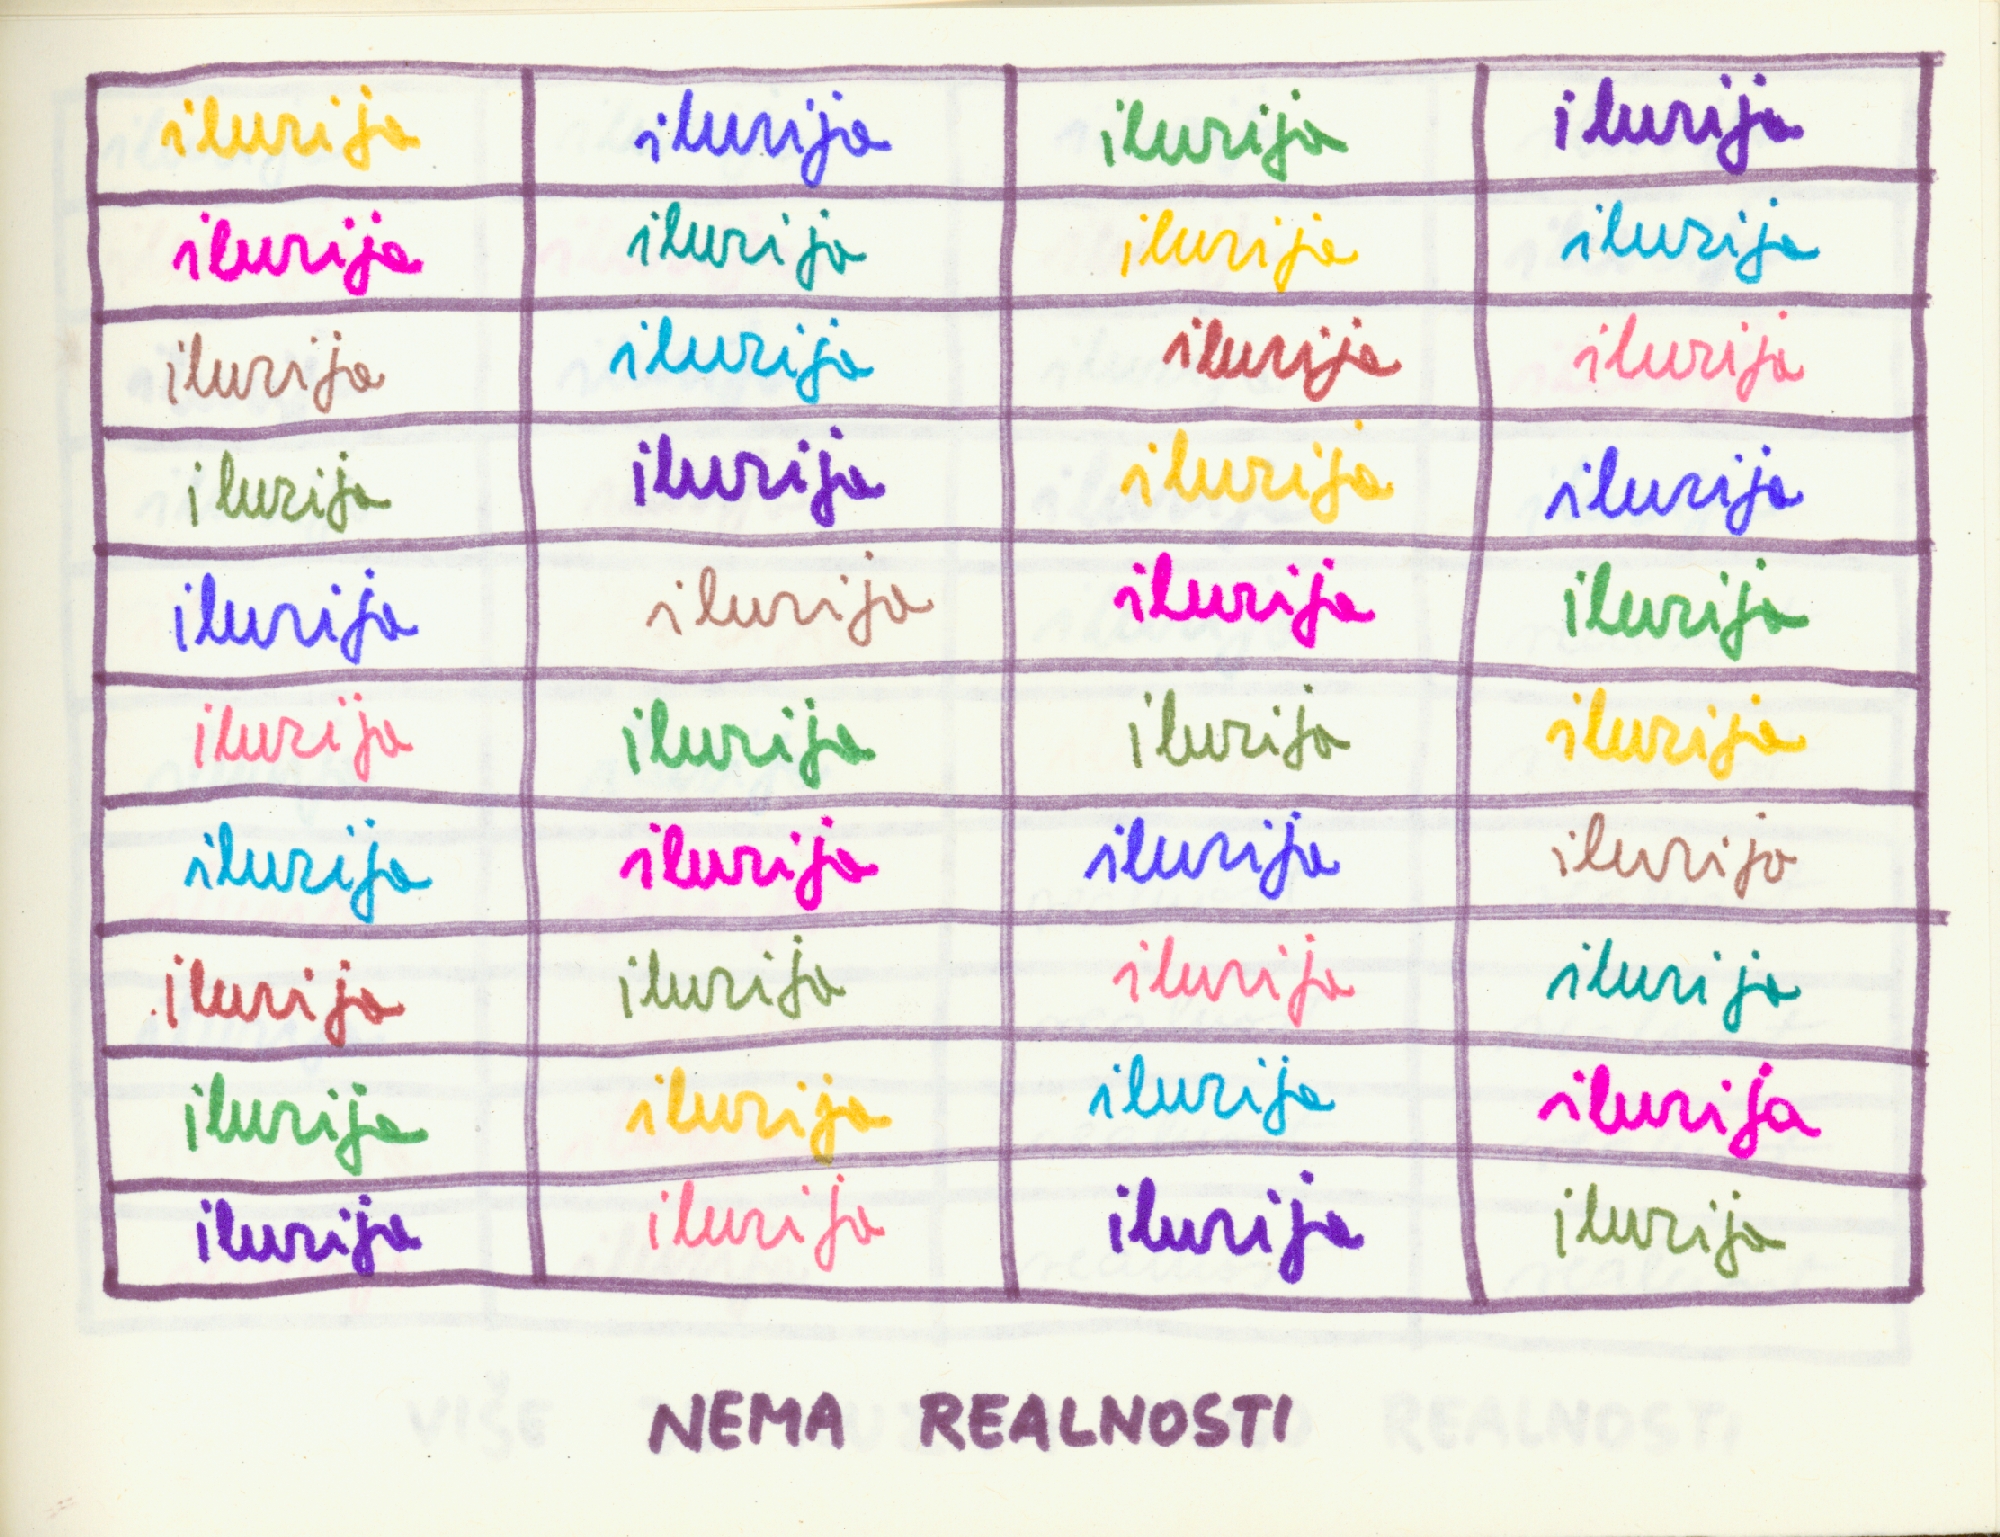 iluzija iluzija iluzija iluzija
iluzija iluzija iluzija iluzija
iluzija iluzija iluzija iluzija
iluzija iluzija iluzija iluzija
iluzija iluzija iluzija iluzija
iluzija iluzija iluzija iluzija
iluzija iluzija iluzija iluzija
iluzija iluzija iluzija iluzija
iluzija iluzija iluzija iluzija
iluzija iluzija iluzija iluzija
NEMA REALNOSTI